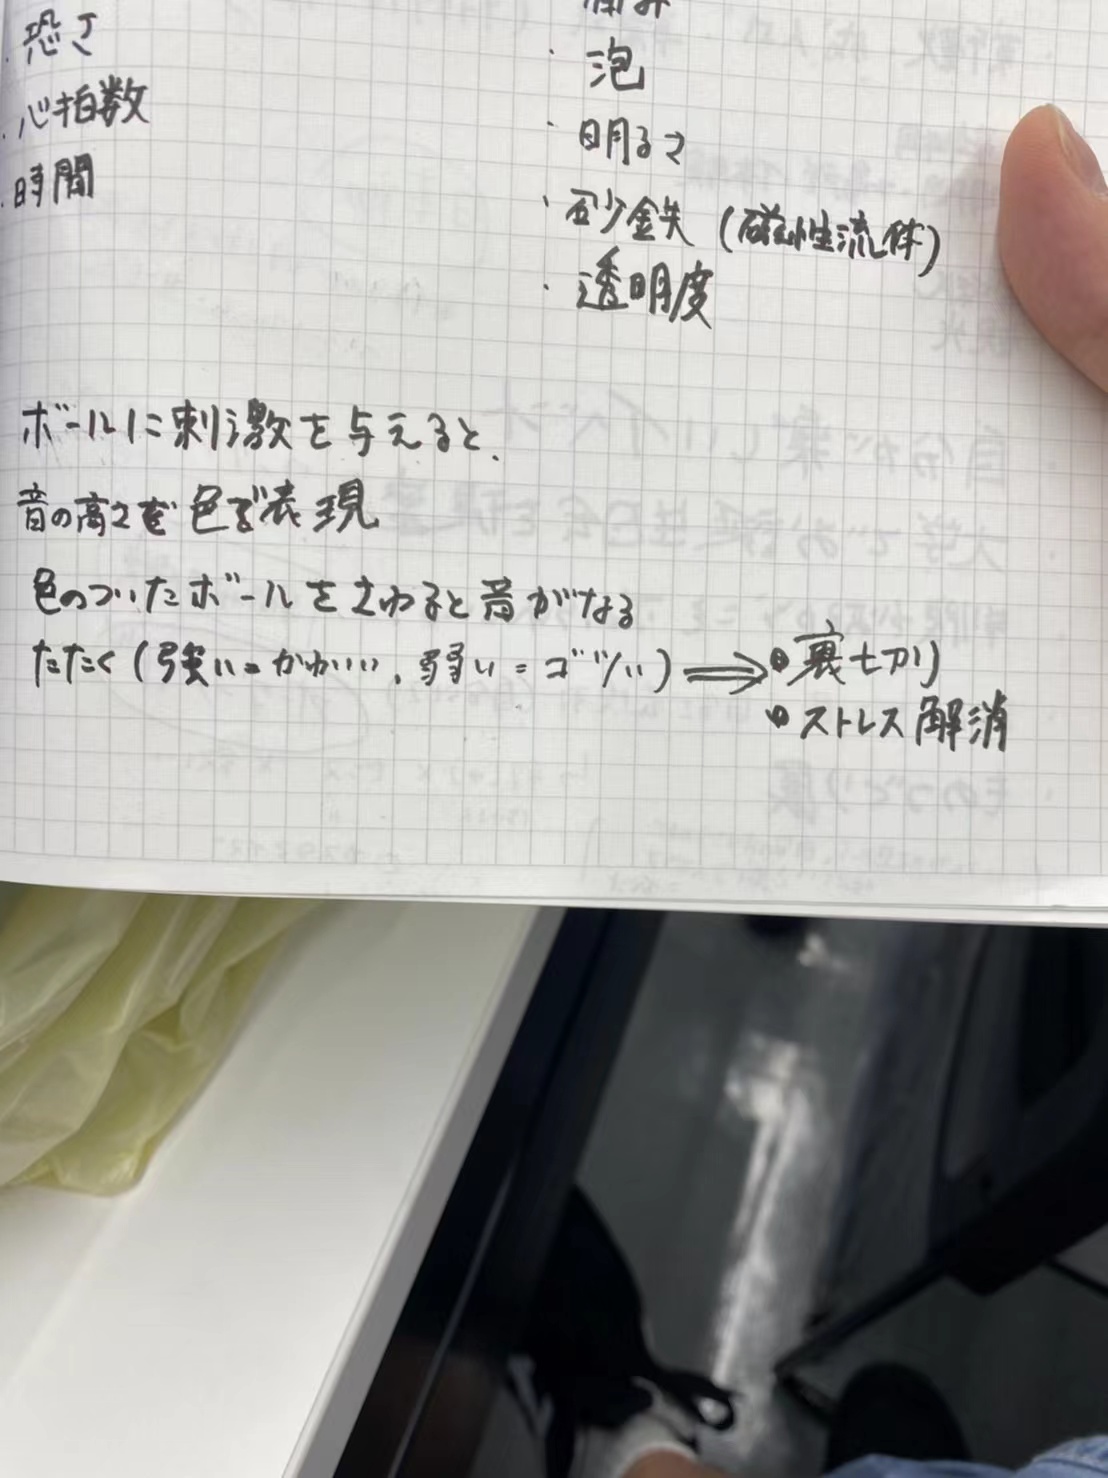 ・恐さ
・心拍数
・時間
痛み
・泡
・明るさ
・砂鉄 (磁性流体)
・透明度
ボールに刺激を与えると、
音の高さを色で表現
色のついたボールをさわると音がなる
たたく (強い=かわいい、弱い=ゴツい) ⇒ 裏切り
ストレス解消